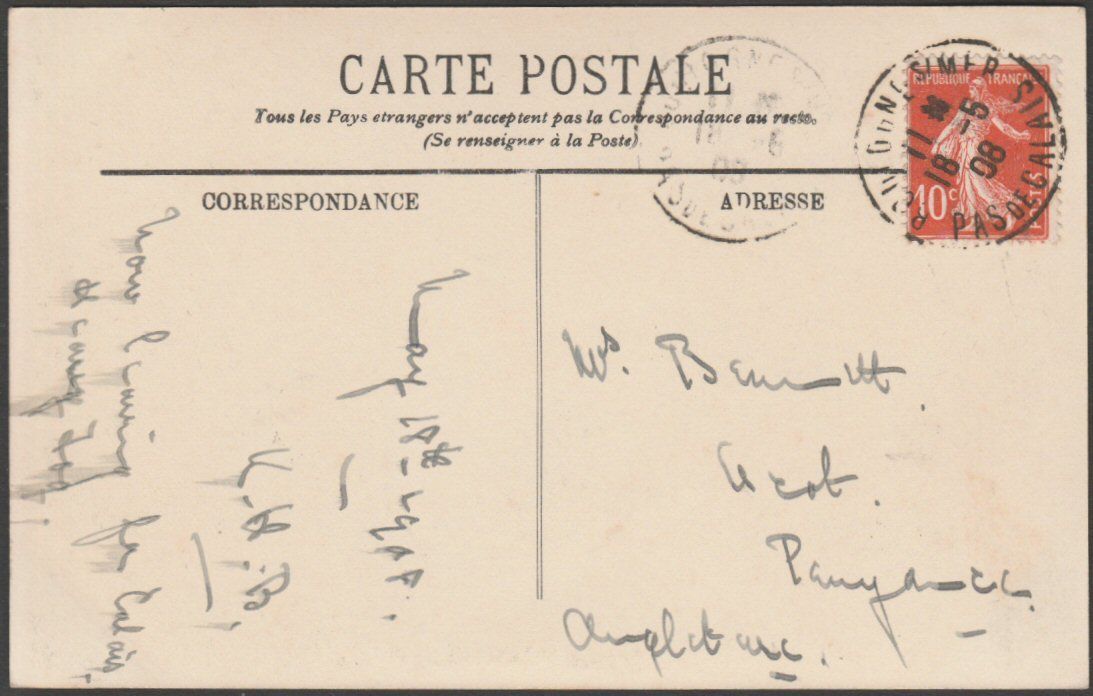 CARTE POSTALE
Tous les Pays etrangers n'acceptent pas la Correspondance au recto.
(Se renseigner à la Poste)
CORRESPONDANCE
ADRESSE
REPUBLIQUE FRANÇAISE
10c
POSTES
BOULOGNE S/MER PAS DE CALAIS
11 *
18 -5
08
May 18th - 1908.
K. H. B.
Now leaving for Calais
Mrs. Bennett
Penzance.
Angleterre.